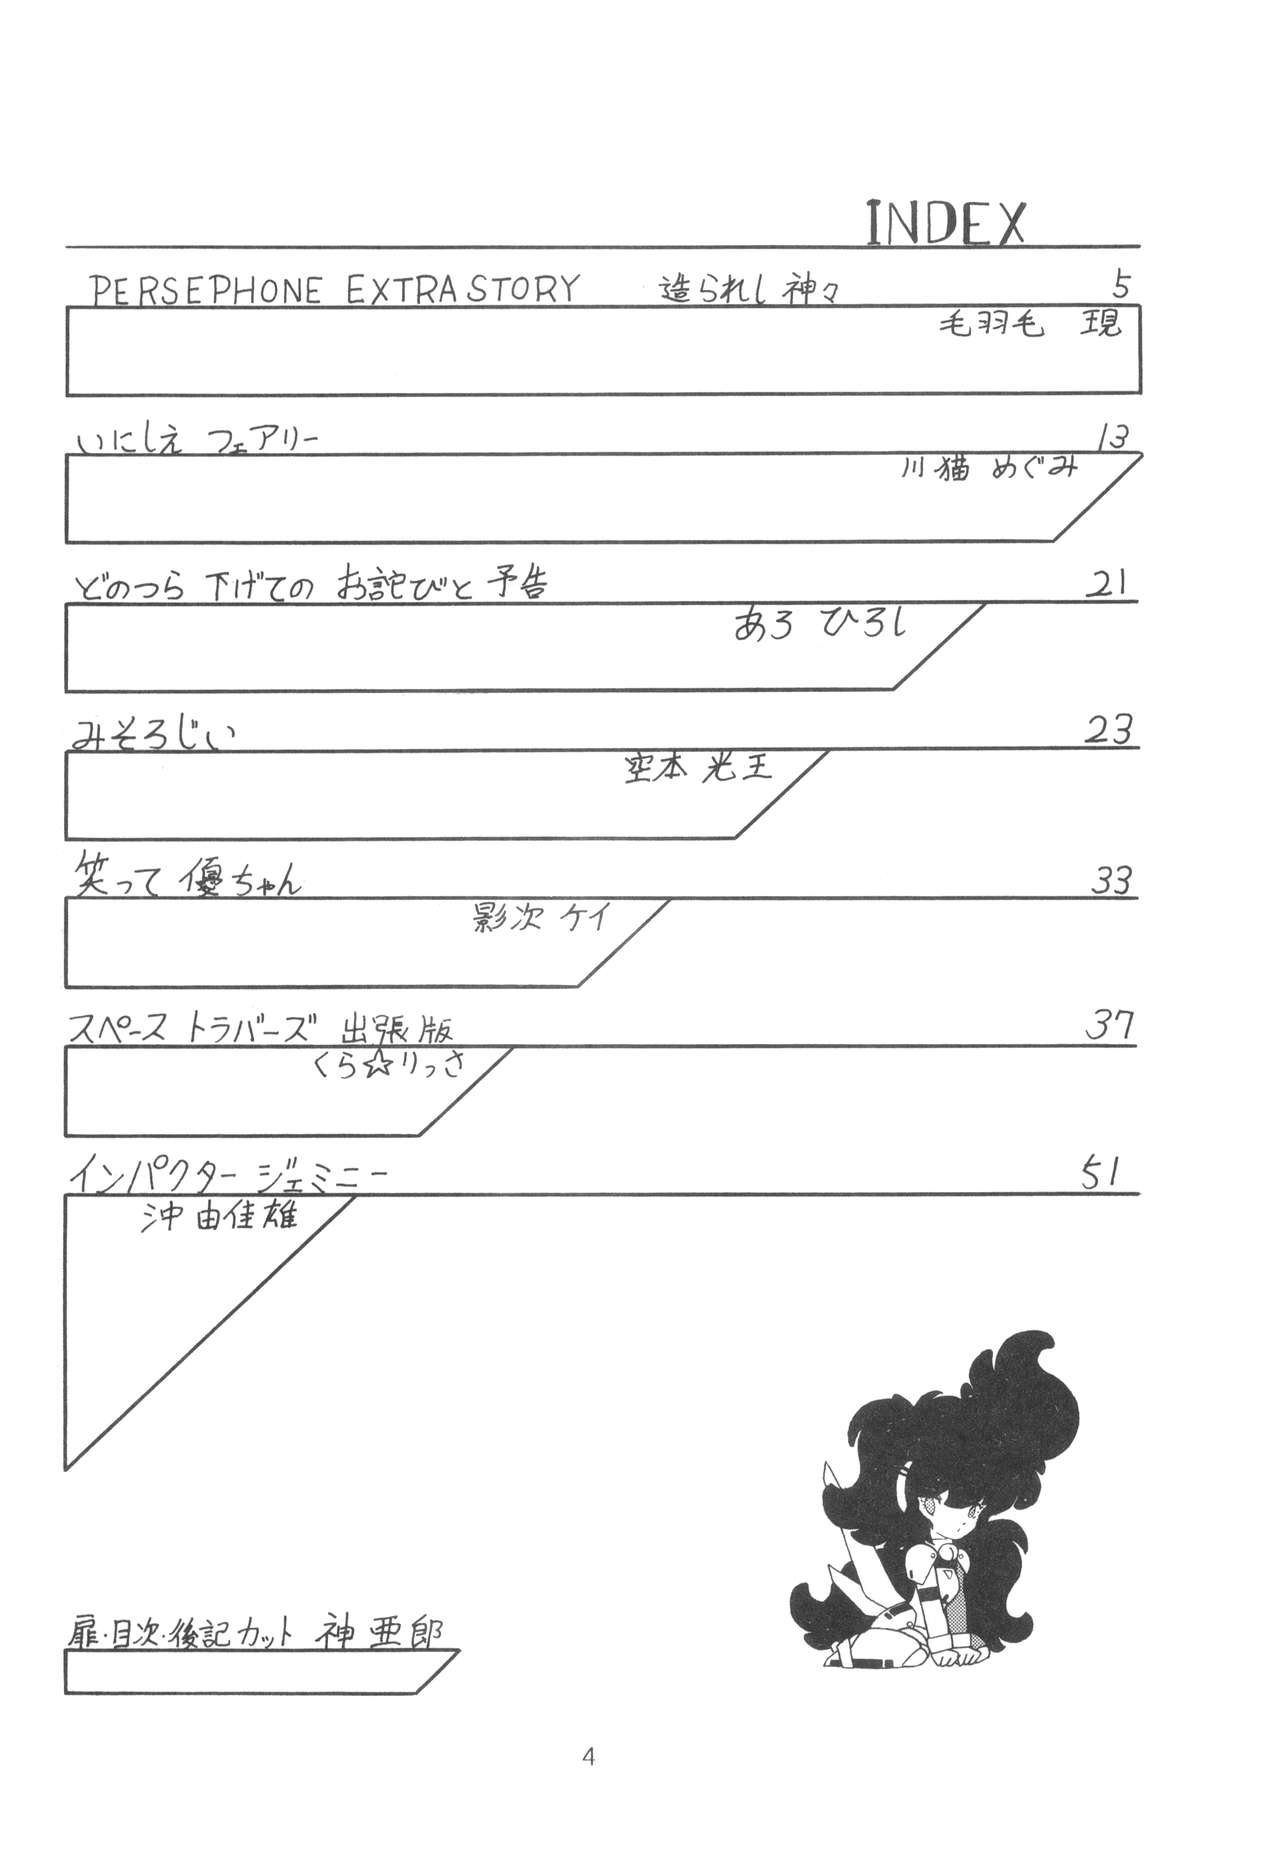 INDEX
PERSEPHONE EXTRA STORY 造られし神々 5
毛羽毛 現
いにしえ フェアリー 13
川猫 めぐみ
どのつら 下げての お詫びと 予告 21
あろ ひろし
みそろじい 23
空本 光王
笑って 優ちゃん 33
影次 ケイ
スペース トラバーズ 出張版 37
くら☆りっさ
インパクター ジェミニー 51
沖 由佳雄
扉・目次・後記カット 神 亜郎
4